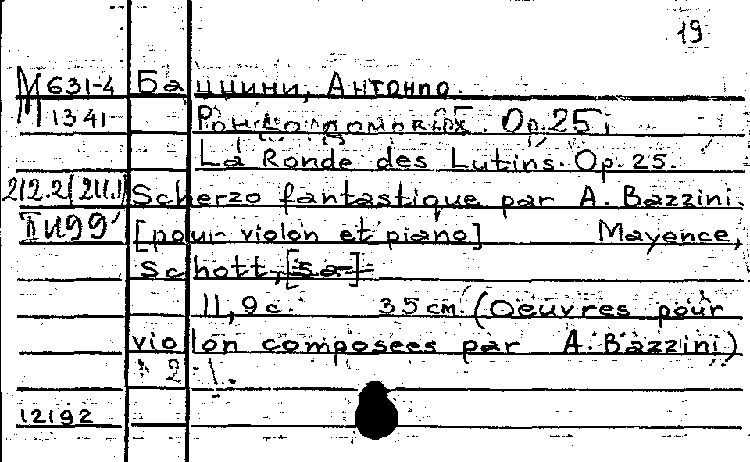 19
М 631-4 Баццини, Антонио.
М 1341 Рондо гномовъ. Op. 25.
La Ronde des Lutins. Op. 25.
Scherzo fantastique par A. Bazzini.
[pour violon et piano] Mayence,
Schott, [s.a.]
11, 9 c. 35 cm. (Oeuvres pour
violon composées par A. Bazzini)
2
12192